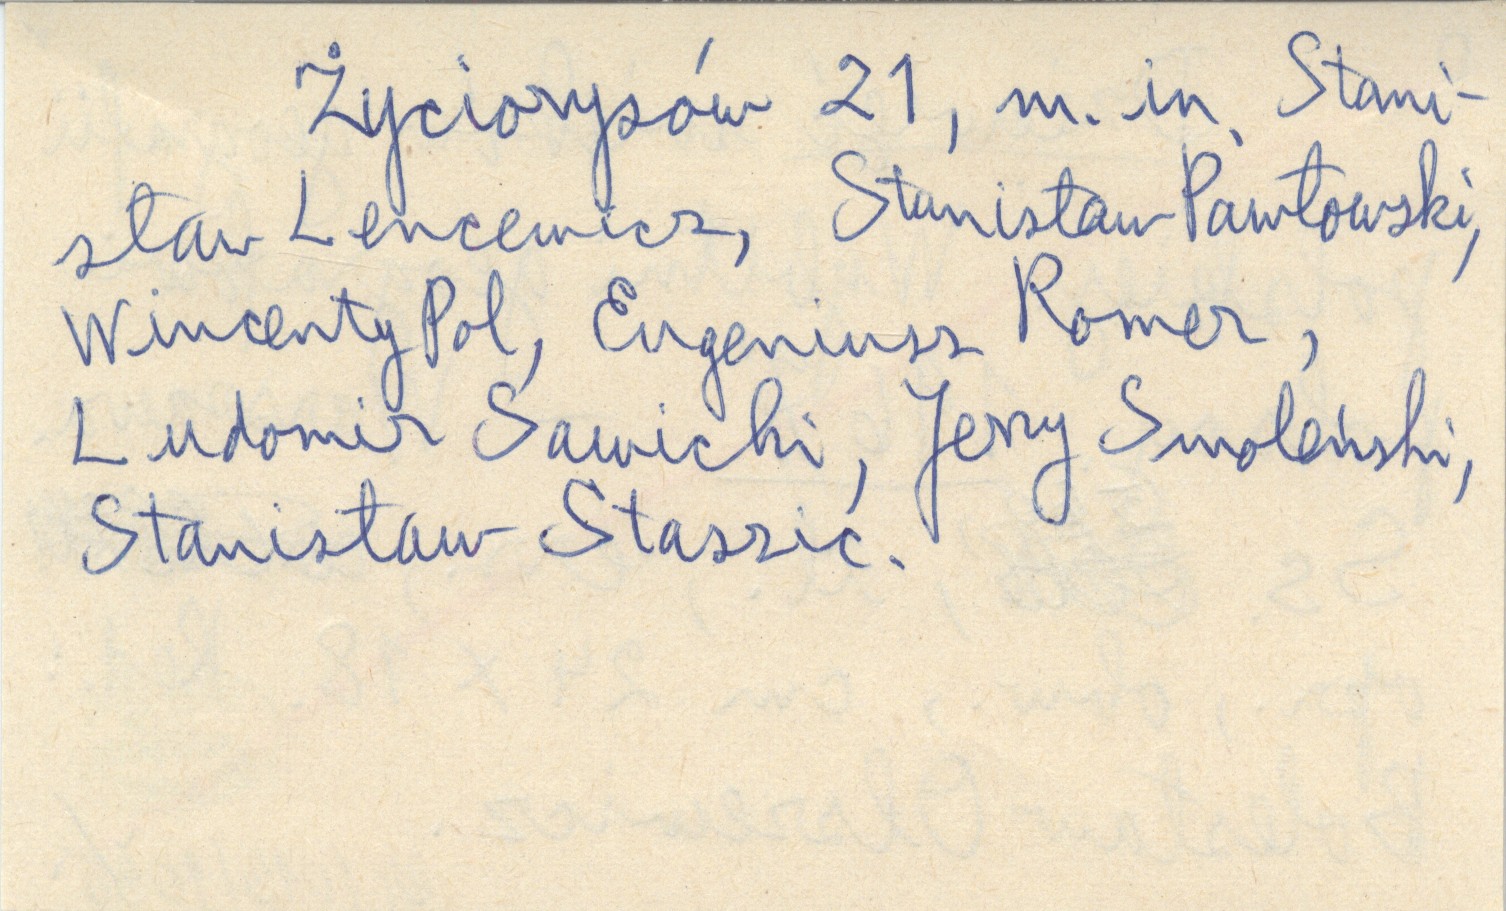 Życiorysów 21, m. in. Stani-
sław Lencewicz, Stanisław Pawłowski,
Wincenty Pol, Eugeniusz Romer,
Ludomir Sawicki, Jerzy Smoleński,
Stanisław Staszic.